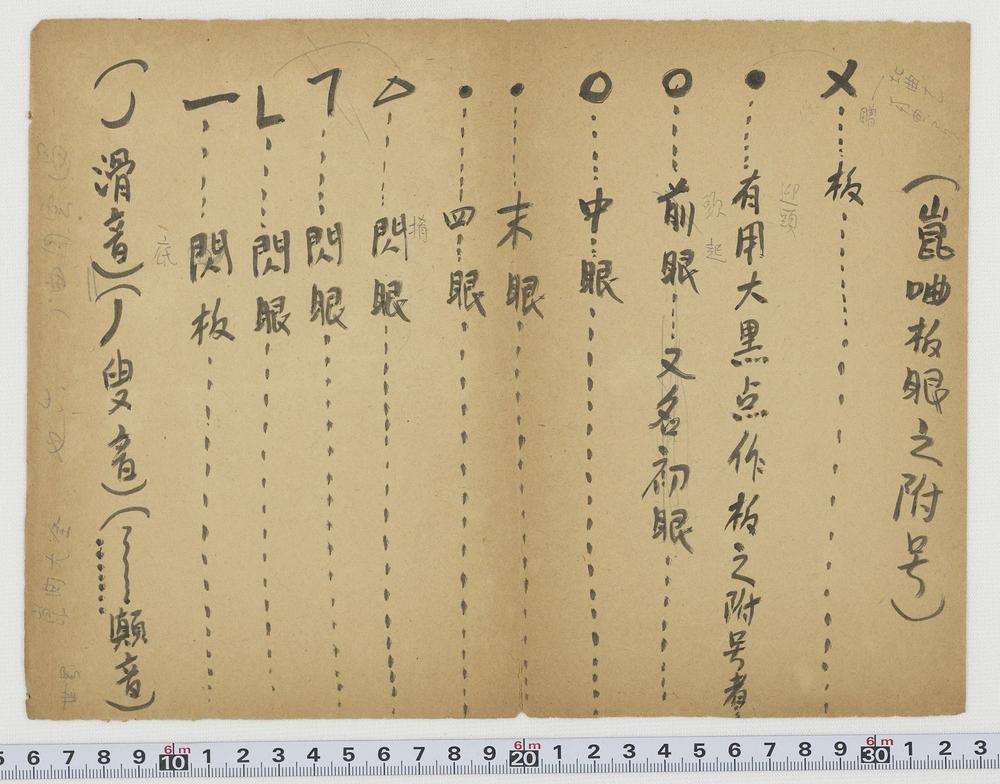 (崑曲板眼之附号)
X 板
● 有用大黑点作板之附号者
迎頭
○ 前眼 又名初眼
○ 中眼
• 末眼
• 四眼
△ 閃眼
ㄱ 閃眼
L 閃眼
一 閃板
底
滑音) ( 叟音) ( 顛音)
6 7 8 9 10 1 2 3 4 5 6 7 8 9 20 1 2 3 4 5 6 7 8 9 30 1 2 3
6m 6m 6m